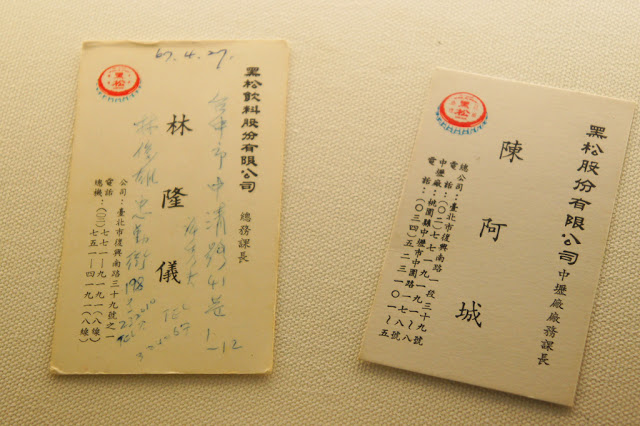 67.4.27.
黑松飲料股份有限公司 總務課長
台中市中清路41巷1-12
林隆儀
TEL
林俊雄 忠勤街198
公司：臺北市復興南路三十九號之一
電話：(〇二)七七一—九一九一(八線)
總機：七五一—四一九一(八線)
黑松
黑松股份有限公司 中壢廠廠務課長
陳阿城
總公司：臺北市復興南路一段三十九號
電話：(〇二)七七一九一九一～八
中壢廠：桃園縣中壢市中園路一七八號
電話：(〇三四)五二三一〇一～五
黑松